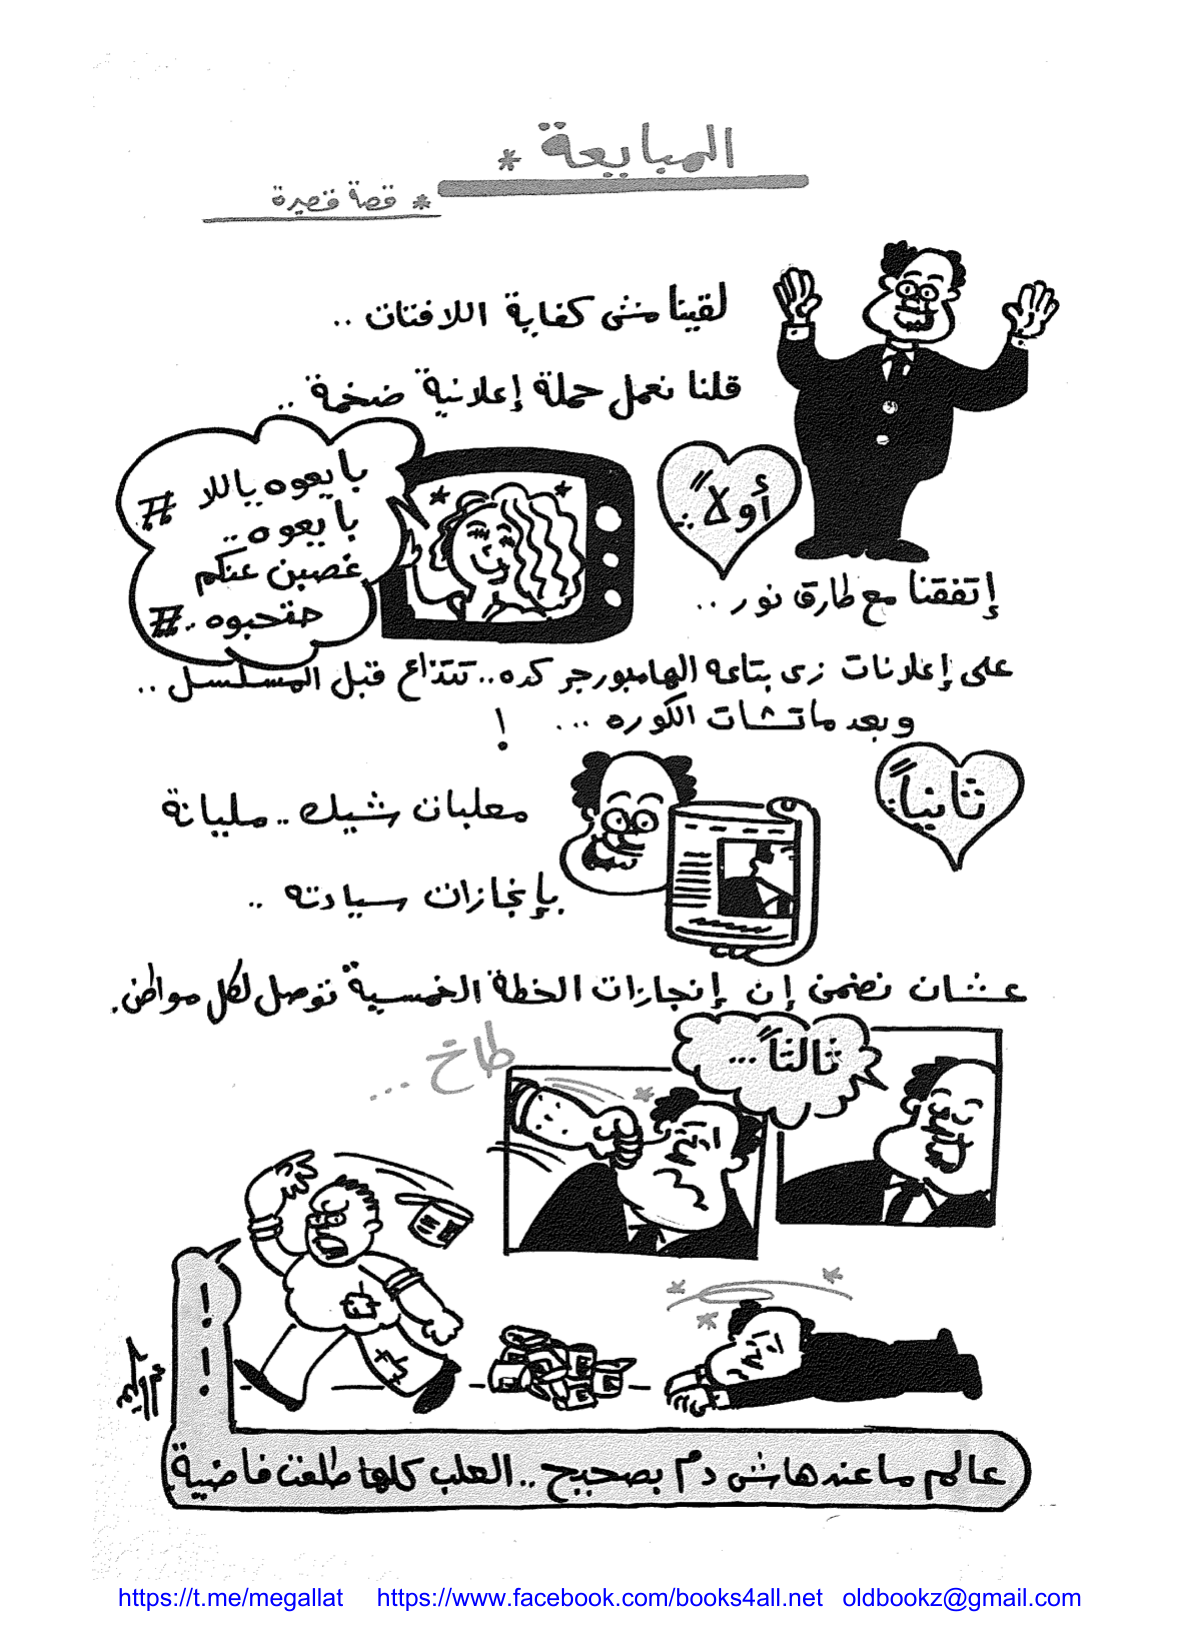 المبايعة *
* قصة قصيرة
لقينا مش كفاية اللافتات ..
قلنا نعمل حملة إعلانية ضخمة ..
أولاً ..
# بايعوه ياللا
بايعوه ..
غصبن عنكم
حتحبوه .. #
إتفقنا مع طارق نور ..
على إعلانات زى بتاعه الهامبورجر كده .. تتذاع قبل المسلسل ..
وبعد ماتشات الكوره ... !
ثانياً :
معلبات شيك .. مليانة
بإنجازات سيادته ..
عشان نضمن إن إنجازات الخطة الخمسية توصل لكل مواطن .
ثالثاً ...
طاخ ...
! ! :
عالم ماعندهاش دم بصحيح .. العلب كلها طلعت فاضية
https://t.me/megallat https://www.facebook.com/books4all.net oldbookz@gmail.com